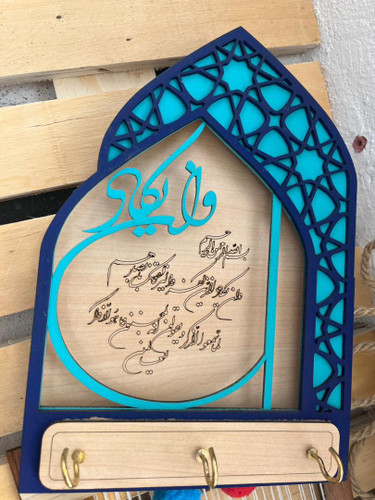 وان یکاد
بسم الله الرحمن الرحیم
وان یکاد الذین کفروا لیزلقونک بابصارهم
لما سمعوا الذکر و یقولون انه لمجنون و ما هو الا ذکر
للعالمین